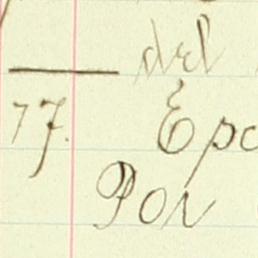 del
77. Epo
Por